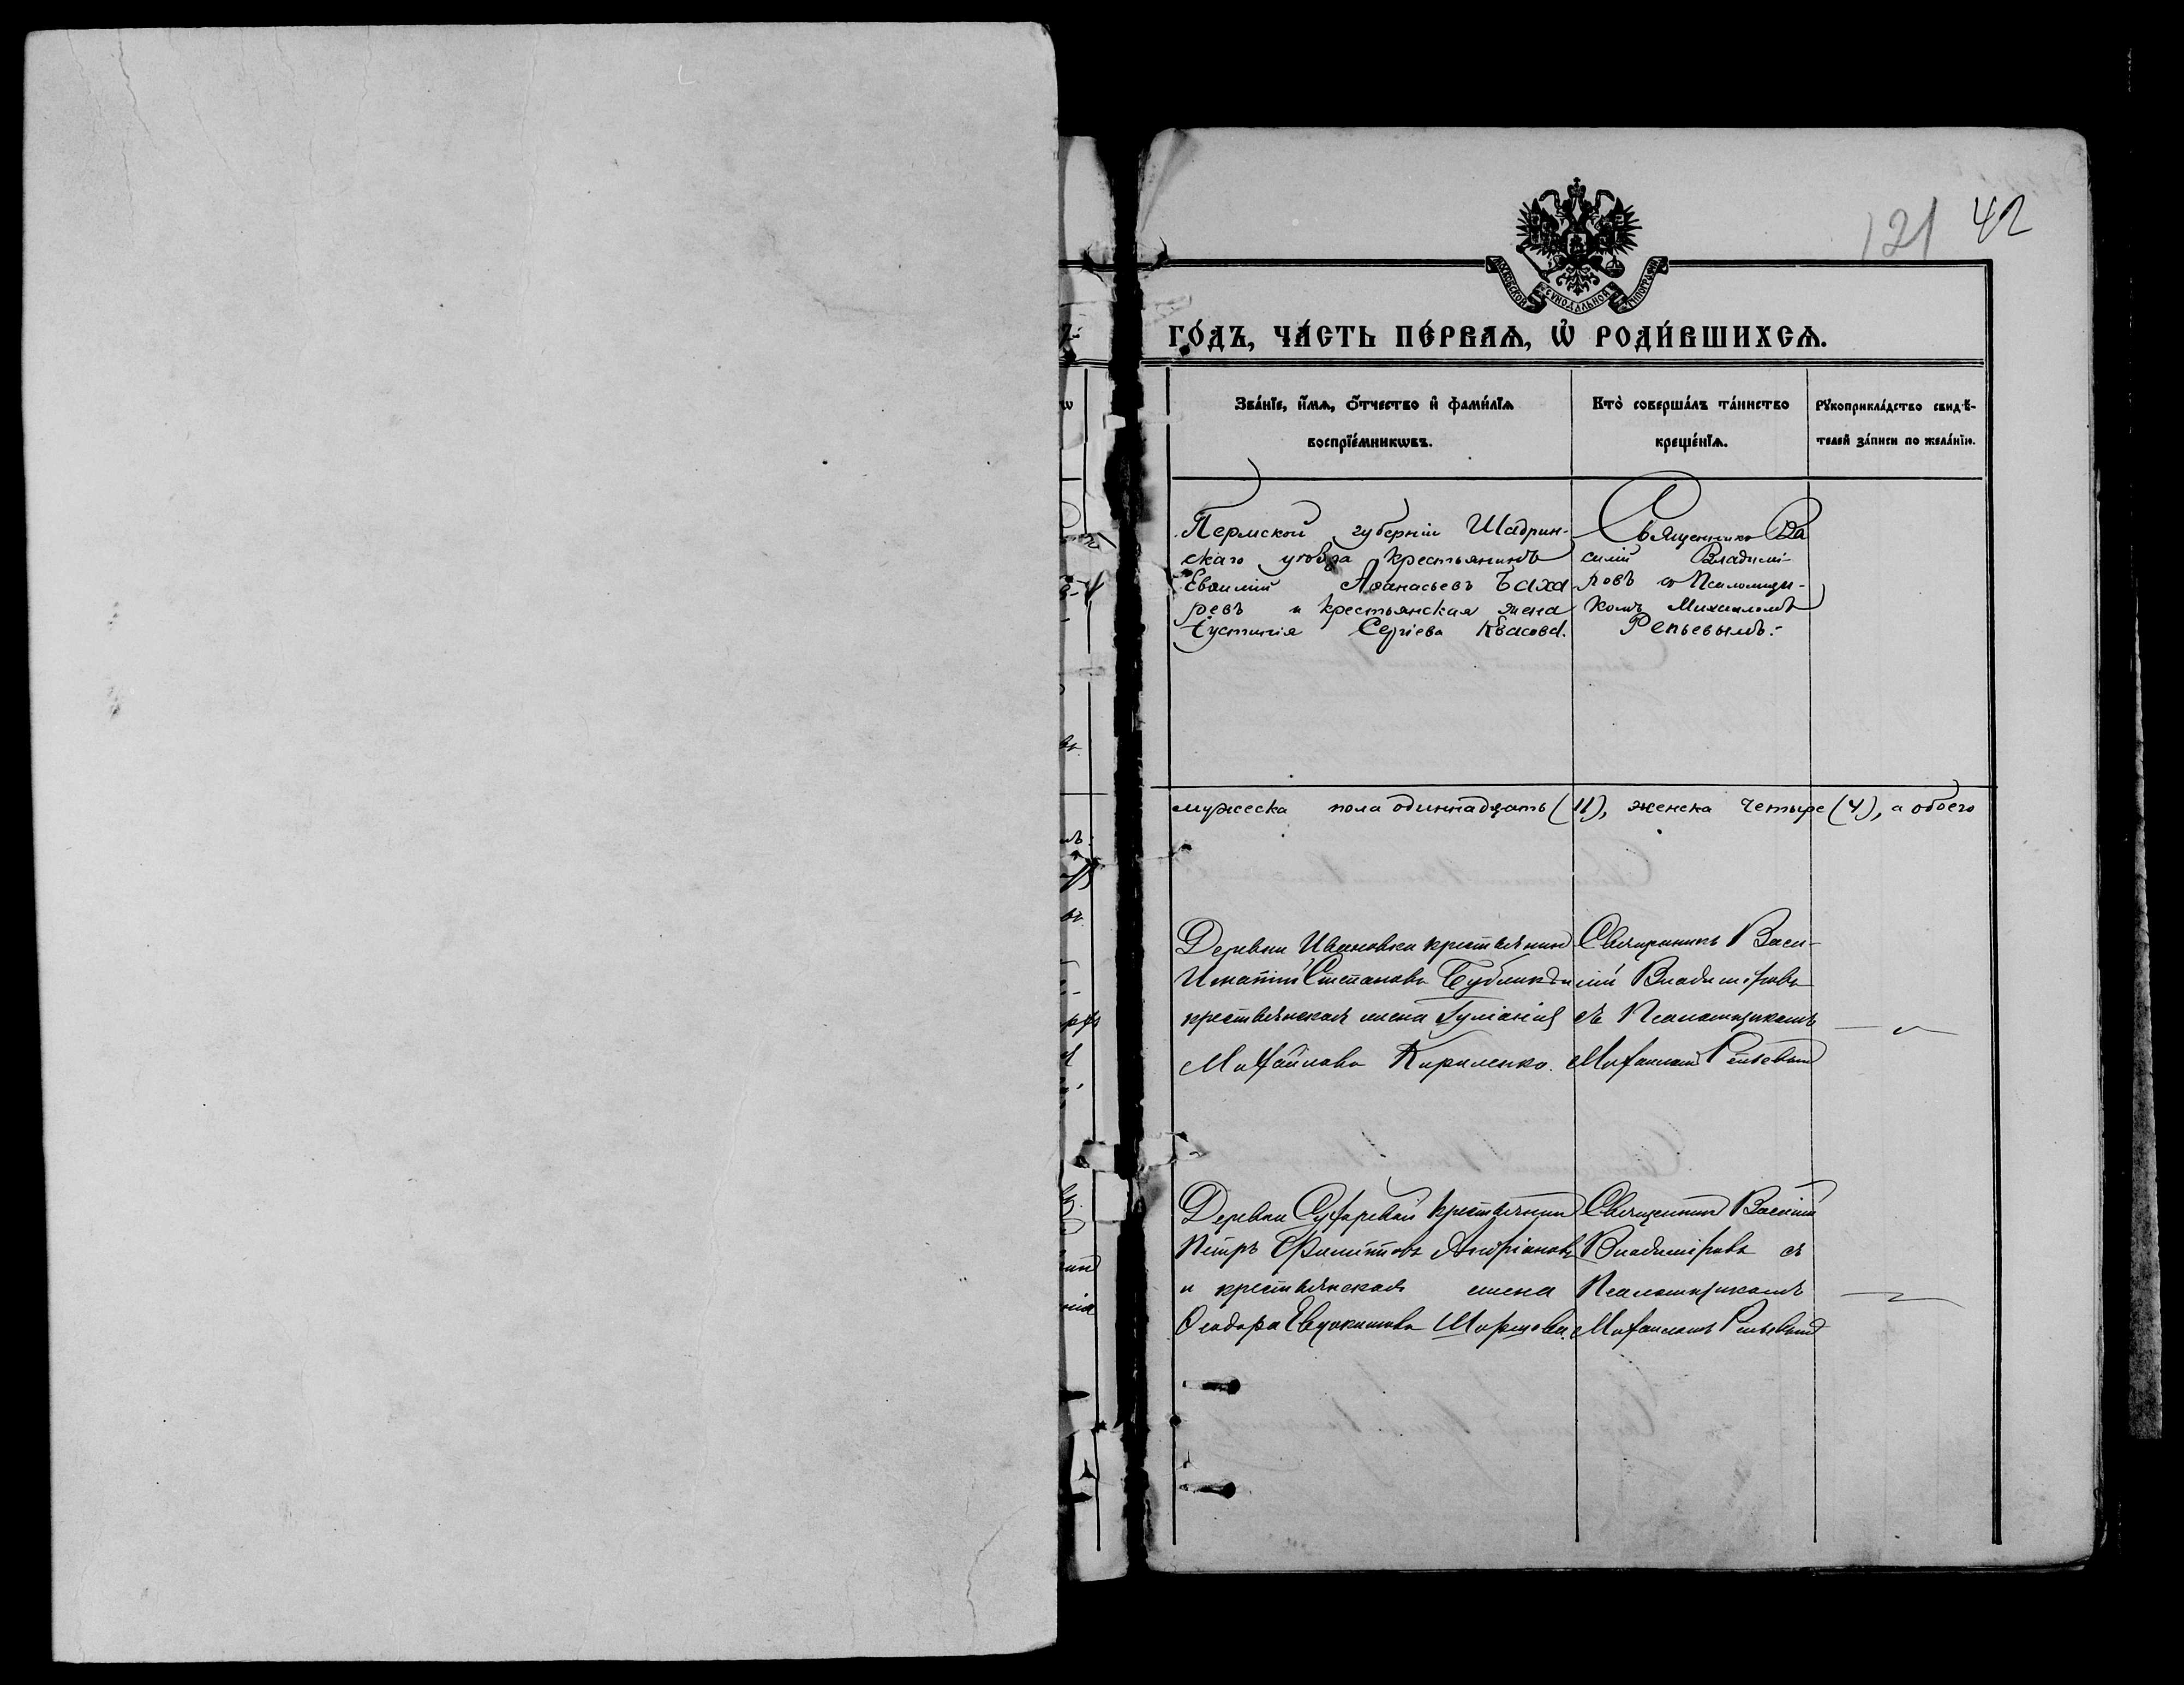 121 42
МОСКОВСКОЙ СѴНОДАЛЬНОЙ ТИПОГРАФІИ
ГО́ДЪ, ЧА́СТЬ ПЕ́РВАѦ, Ѡ҆ РОДИ́ВШИХСѦ.
Зва́нїе, и҆́мѧ, ѻ҆́тчество и҆ фами́лїѧ
воспрїе́мникѡвъ.
Кто̀ соверша́лъ та́инство
креще́нїѧ.
Рꙋкоприкла́дство свидѣ́-
телей за́писи по жела́нїю.
Пермской губерніи Шадрин-
скаго уѣзда крестьянинъ
Евѳимій Аѳанасьевъ Баха
ревъ и крестьянская жена
Іустинія Сергіева Квасова.
Священникъ Ва
силій Владимі-
ровъ съ Псаломщи-
комъ Михаиломъ
Репьевымъ.
мужеска пола одиннадцать (11), женска четыре (4), а обоего
Деревни Ивановки крестьянинъ
Игнатій Степановъ Бубликъ и
крестьянская жена Іуліанія
Михайлова Кириленко.
Священникъ Васи-
лій Владиміровъ
съ Псаломщикомъ
Михаиломъ Репьевымъ
Деревни Сухаревой крестьянинъ
Петръ Филиповъ Андріановъ
и крестьянская жена
Ѳеодора Евдокимова
Священникъ Василій
Владиміровъ съ
Псаломщикомъ
Михаиломъ Репьевымъ